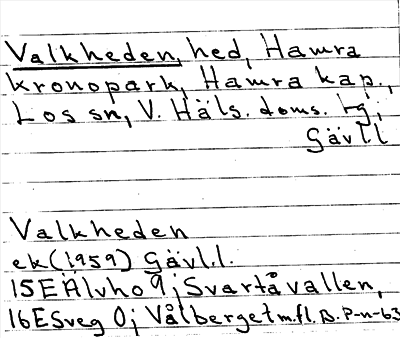 Valkheden, hed, Hamra
kronopark, Hamra kap.,
Los sn, V. Häls. doms. tg;
Gävl.l
Valkheden
ek(1959) Gävl.l.
15E Älvho 9; Svartåvallen,
16E Sveg 0; Vålberget m.fl. B. P-n-63